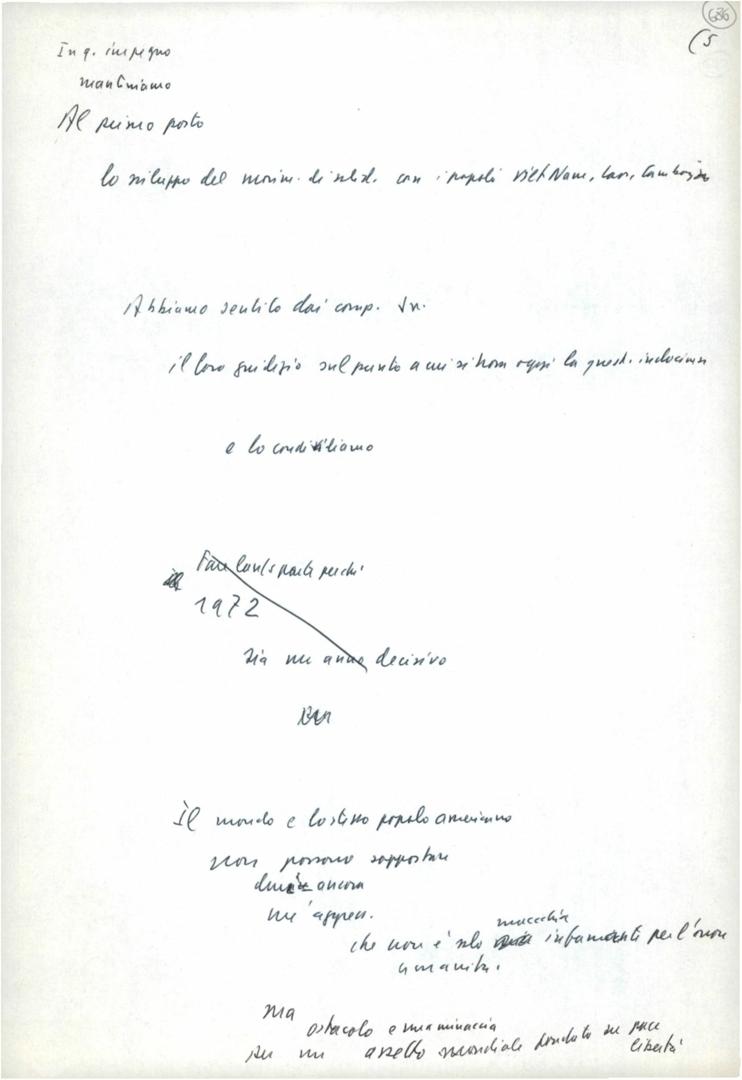 636
(5
In q. impegno
mantiniamo
Al primo posto
lo sviluppo del movim. di solid. con i popoli Viet Nam, Laos, Cambogia
Abbiamo sentito dai comp.
il loro giudizio sul punto a cui si trova oggi la quest. indocinese
e lo condividiamo
Fare la ns parte perché
1972
sia un anno decisivo
Il mondo e lo stesso popolo americano
non possono sopportare
ancora
un'aggress.
macchia
che non è solo infamante per l'onore
umanità.
ma
ostacolo e minaccia
su un assetto mondiale fondato su pace
libertà